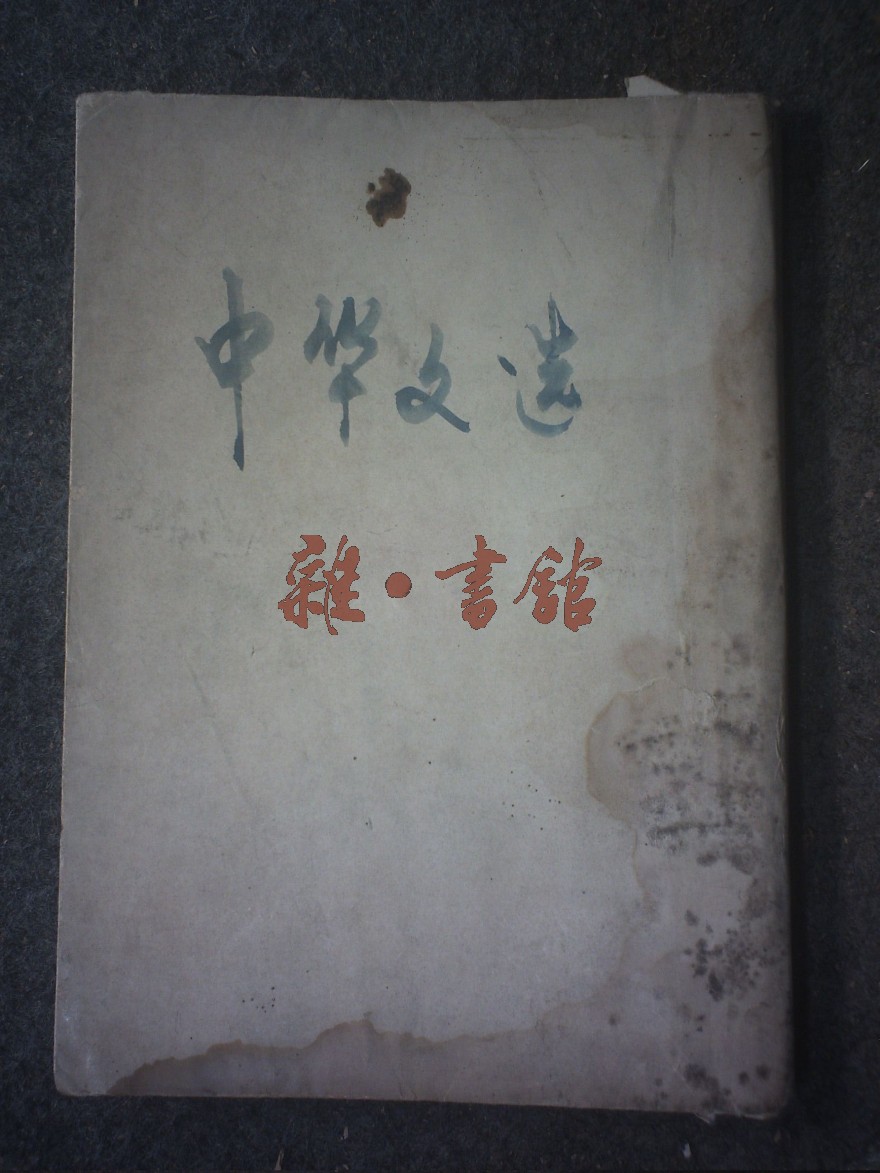 中华文选
雜·書館